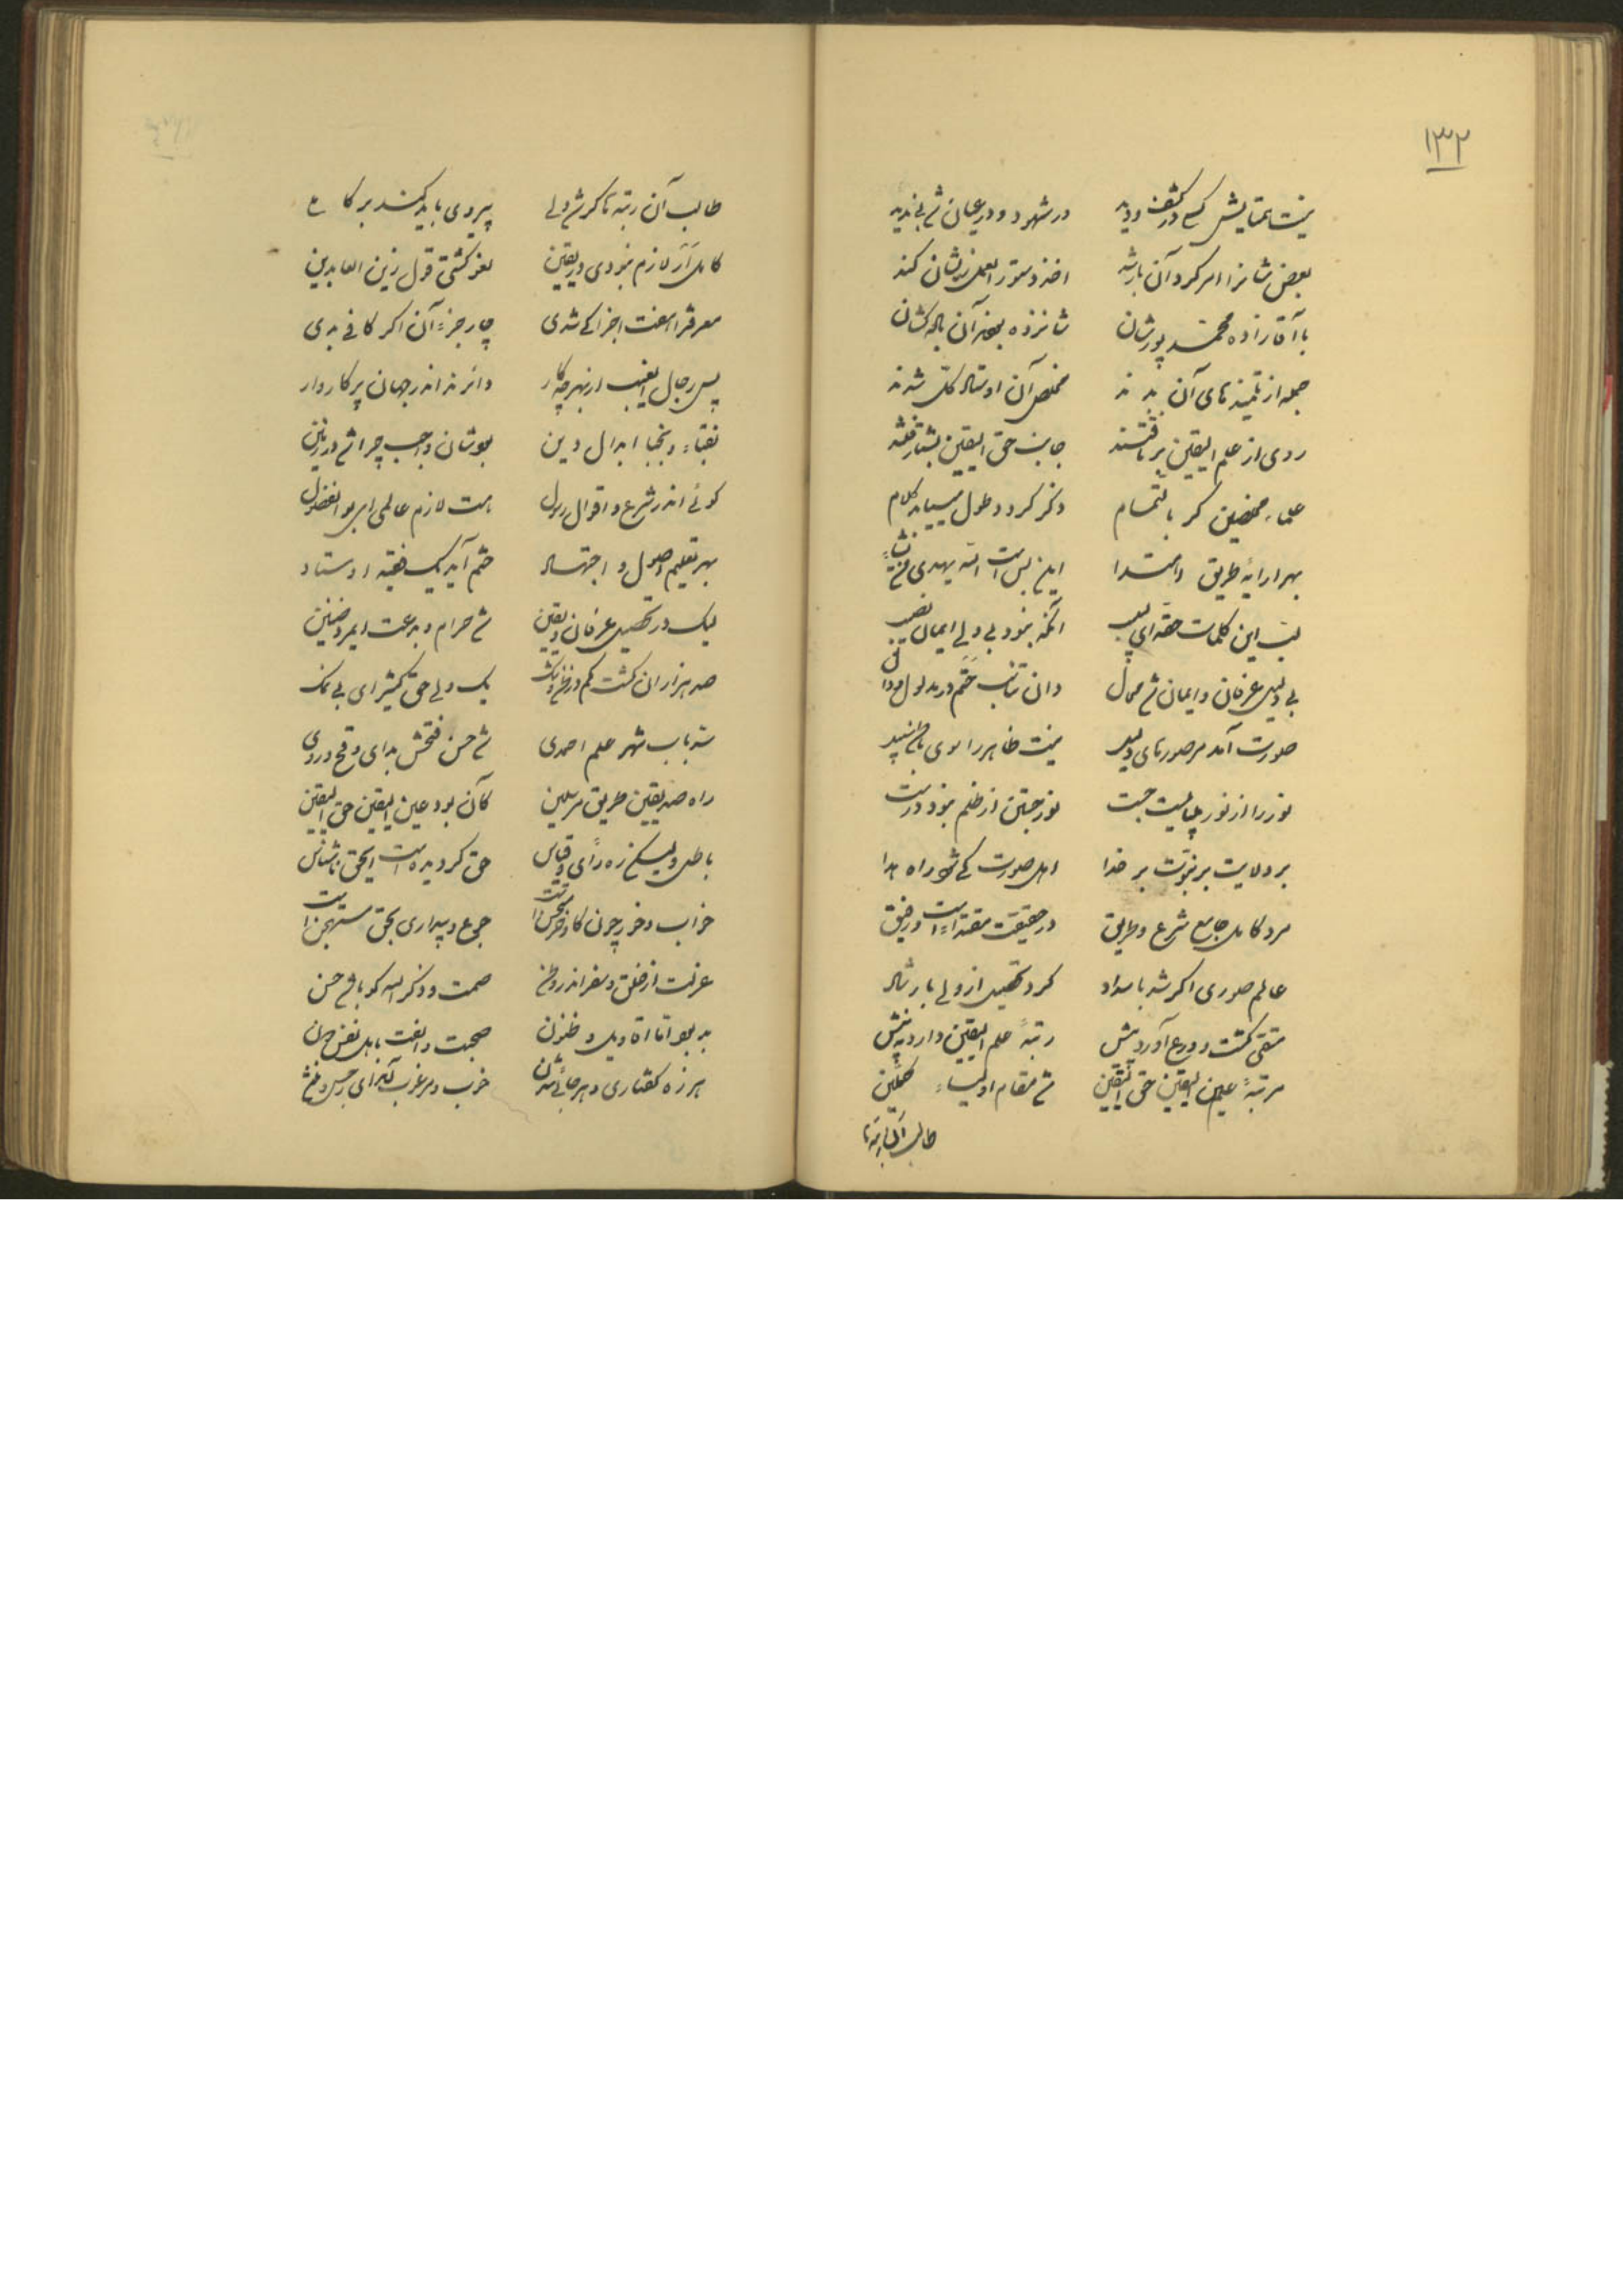 ۱۳۲
نیست همتایش کسی در کشف و دید در شهود و در عیان شی بی ندید
بعض شانرا امر کرد آن بارشد اخذ دستور العمل زیشان کند
با آقازاده محمد پورشان شانزده بودند آن باله کشان
جمله از تلمیذهای آن بدند مخلص آن اوستاد کل شدند
روی از علم الیقین برتافتند جانب حق الیقین بشتافتند
علماء مخلصین گر بالتمام ذکر گردد طول میباید کلام
بهر ارایه طریق و اهتدا این بس است الله یهدی من یشاء
لب این کلمات حقه ای لبیب آنکه نبود بی ولی ایمان نصیب
بی ولی عرفان و ایمان شی محال دان تناسب حتم در مدلول و دال
صورت آمد مر صورهای دلید نیست ظاهر را سوی باطن سپید
نور را از نور میبایست جست نور جستن از ظلم نبود درست
بر ولایت بر نبوت بر خدا اهل صورت کی شود راه هدا
مرد کامل جامع شرع و طریق در حقیقت مقتداء است و رفیق
عالم صوری اگر شد با سداد کرد تحصیل از ولی با رشاد
متقی گشت و ورع آورد پیش رتبهٔ علم الیقین دارد به پیش
مرتبهٔ عین الیقین حق الیقین شی مقام اولیاء کملین
طالب آن رتبه تا
طالب آن رتبه تا گر شی ولی پیروی باید کند بر کاملی
کامل ار لازم نبودی در یقین لغو گشتی قول زین العابدین
معرفت را هفت اجزا کی شدی چار جزء آن اگر کافی بدی
پس رجال الغیب از بهر چه کار دائرند اندر جهان پرگاروار
نقباء و نجبا ابدال دین بودشان واجب چرا شی در زمین
گوئی اندر شرع و اقوال رسول هست لازم عالمی ای بوالفضول
بهر تعلیم اصول و اجتهاد حتم آید یک فقیه اوستاد
لیک در تحصیل عرفان و یقین شی حرام و بدعت ای مرد ضنین
صد هزاران گشت کم در ظن و شک یک ولی حق نگشت ای بی نمک
سد باب شهر علم احمدی شی حسن فتحش بد ای وقح و ردی
راه صدیقین طریق مرسلین کان بود عین الیقین حق الیقین
باطل و لیکن ره رأی و قیاس حق گردیده است ای حق ناشناس
خواب و خور چون گاو و خر مستحسن است جوع و بیداری بحق مستهجن است
عزلت از خلق و سفر اندر وطن صمت و ذکر الله کو باشی حسن
بد بود اما اقاویل و ظنون صحبت و الفت با اهل نفس دون
هرزه گفتاری و هرجائی شدن خوب و مرغوب آمد ای